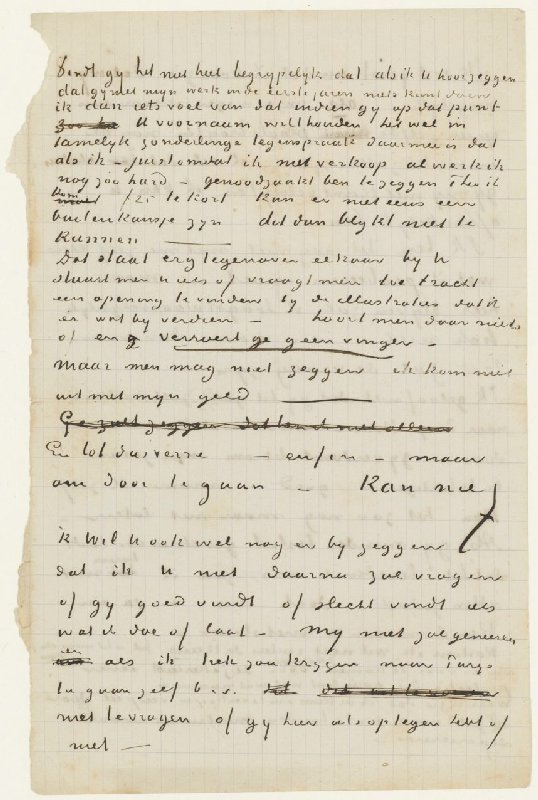 Vindt gy het niet heel begrypelyk dat als ik U hoor zeggen
dat gy met myn werk in de eerste jaren niets kunt doen
ik dan iets voel van dat indien gy op dat punt
U voornaam wilt houden het wel in
tamelyk zonderlinge tegenspraak daarmee is dat
als ik – juist omdat ik niet verkoop al werk ik
nog zoo hard – genoodzaakt ben te zeggen Theo ik
kom f 25 te kort kan er niet eens een
buitenkansje zyn dit dan blykt niet te
kunnen ———
Dat staat erg tegenover elkaar by U
stuurt men U iets of vraagt men toe tracht
een opening te vinden by de illustraties dat ik
er wat by verdien – hoort men daar niets
of en verroert ge geen vinger –
maar men mag niet zeggen ik kom niet
uit met myn geld ———
Ge zult zeggen dat komt niet alleen
En tot dusverre – enfin – maar
om door te gaan – Kan nie/t
ik wil U ook wel nog er by zeggen
dat ik U niet daarna zal vragen
of gy goed vindt of slecht vindt iets
wat ik doe of laat – my niet zal geneeren
en als ik trek zou krygen naar Parys
te gaan zelf b.v.
niet te vragen of gy hier iets op tegen hebt of
niet —